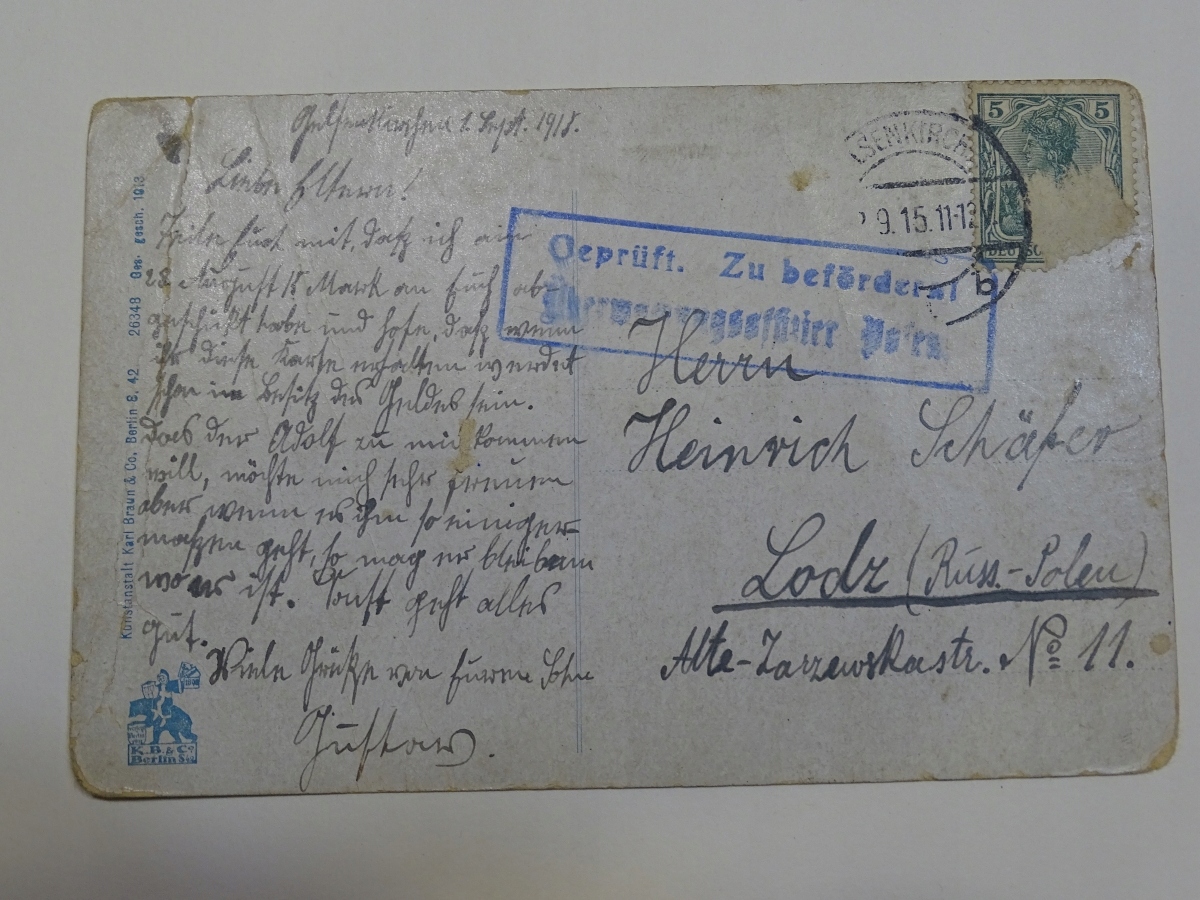 Gelsenkirchen 1. Sept. 1915.
Liebe Eltern!
Teile Euch mit, daß ich am
28. August 15 Mark an Euch ab-
geschickt habe und hoffe, daß wenn
ihr diese Karte erhalten werdet
schon im Besitz des Geldes sein.
Daß der Adolf zu mir kommen
will, möchte mich sehr freuen
aber wenn es ihm so einiger-
maßen geht, so mag er bleiben
wo er ist. Sonst geht alles
gut.
Viele Grüße von Eurem Sohn
Gustav.
Kunstanstalt Karl Braun & Co., Berlin S. 42 26348 Ges. gesch. 1913
K.B. & Co
Berlin
LSENKIRCH
9.15.11-12
b
5 5
Geprüft. Zu befördern!
Überwachungsoffizier Posen.
Herrn
Heinrich Schäfer
Lodz (Russ.-Polen)
Alte-Zarzewskastr. No 11.